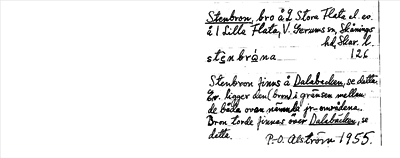 Stenbron, bro å 2 Stora Flata el. co.
å 1 Lilla Flata, V. Gerums sn, Skånings
hd, Skar. l.
stenbrána 126
Stenbron finns å Dalabacken, se detta.
Ev. ligger den (bron) i gränsen mellan
de båda ovan nämnda jr-områdena.
Bron torde finnas över Dalabäcken, se
detta.
P.-O. Alström 1955.